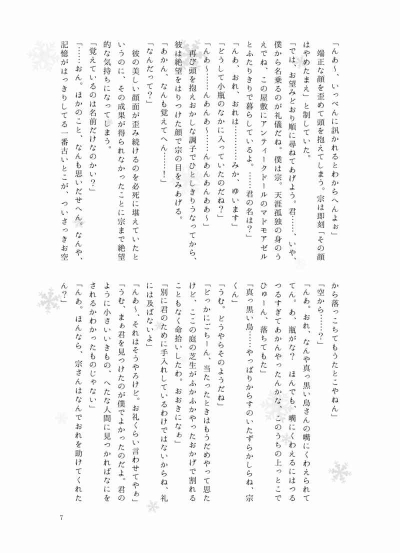 「んあ～、いっぺんに訊かれるとわからへんよぉ」
　端正な顔を歪めて頭を抱えてしまう。宗は即刻「その顔
はやめたまえ」と制していた。
「では、お望みどおり順に尋ねてあげよう。君……、いや、
僕から名乗るのが礼儀だね。僕は宗。天涯孤独の身のう
えでね、この屋敷にアンティークドールのマドモアゼル
とふたりきりで暮らしているよ。……君の名は？」
「んあ、おれ、おれは……みか、ゆいます」
「どうして小瓶のなかに入っていたのだね？」
「んあ～……んあんあ～……んあんあんああ～」
　再び頭を抱えおかしな調子でひとしきりうなってから、
彼は絶望をはりつけた顔で宗の目をみあげる。
「あかん、なんも覚えてへん……！」
「なんだって？」
　彼の美しい顔面が歪み続けるのを必死に堪えていたと
いうのに、その成果が得られなかったことに宗まで絶望
的な気持ちになってしまう。
「覚えているのは名前だけなのかい？」
「……おん。ほかのこと、なんも思いだせへん。なんや、
記憶がはっきりしてる一番古いとこが、ついさっきお空
から落っこちてもうたとこやねん」
「空から……？」
「んあ。おれ、なんや真っ黒い鳥さんの嘴にくわえられて
てん。あ、瓶がな？　ほんでも、嘴にくわえにはつる
つるすぎてあかんやったんかな、このうちの上っとこで
ひゅーん、落ちてもた」
「真っ黒い鳥……やっぱりからすのいたずらかしらね、宗
くん」
「うむ。どうやらそのようだね」
「どっかにごちーん、当たったときはもうだめやって思た
けど、ここの庭の芝生がふかふかやったおかげで割れる
こともなく命拾いしたわ。おおきになぁ」
「別に君のために手入れしているわけではないからね、礼
には及ばないよ」
「んあ～、それはそうやろけど。お礼くらい言わせてやぁ」
「うむ。まぁ君を見つけたのが僕でよかったのだよ。君の
ように小さいいきもの、へたな人間に見つかればなにを
されるかわかったものじゃない」
「んあ。ほんなら、宗さんはなんでおれを助けてくれた
ん？」
7